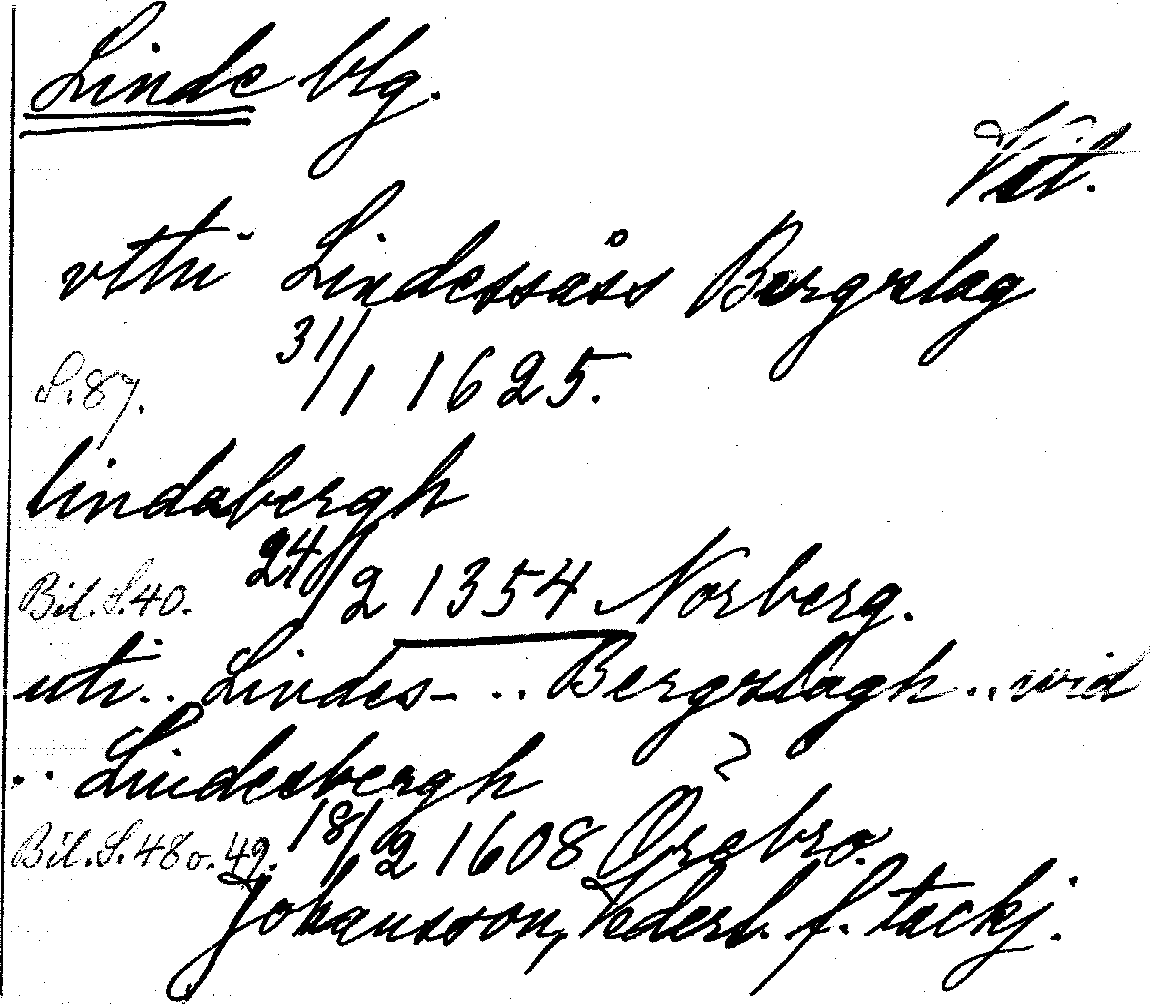 Linde blg.
Vst.
vthi Lindessåss Bergslag
S. 87. 31/1 1625.
lindabergh
Bil. S. 40. 24/2 1354 Norberg.
uti .. Lindes- .. Bergslagh .. wid
.. Lindesbergh
Bil. S. 48 o. 49. 18/12 1608 Örebro.
Johansson, Vederl. f. tackj.